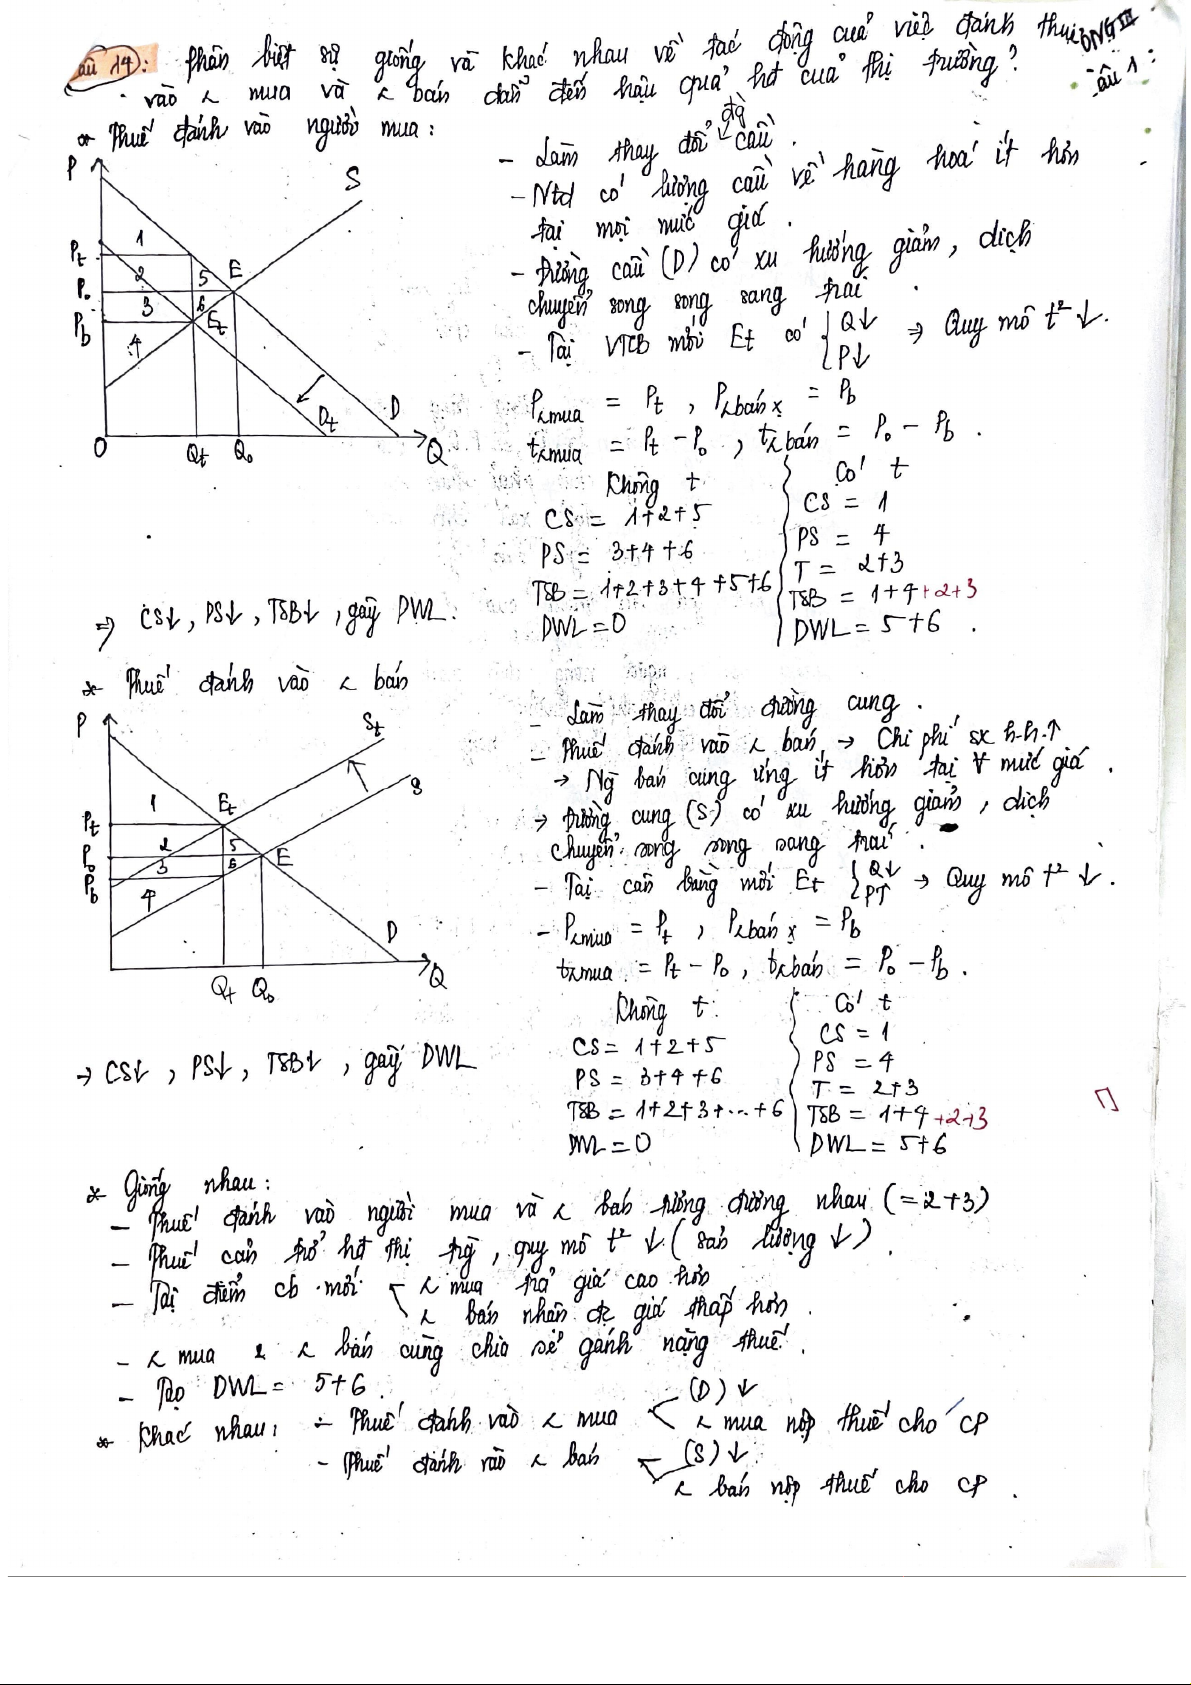 Câu 14: Phân biệt sự giống và khác nhau về tác động của việc đánh thuế
vào < mua và < bán dẫn đến hậu quả hđ của thị trường?
ONG III
Câu 1:
* Thuế đánh vào người mua:
P
S
Pt
P₀
Pb
1
2
3
4
5
6
E
Et
Dt
D
O
Qt
Q₀
Q
- Làm thay đổi đg cầu.
- Ntd có lượng cầu về hàng hoá ít hơn
tại mọi mức giá.
- Đường cầu (D) có xu hướng giảm, dịch
chuyển song song sang trái
- Tại VTCB mới Et có { Q↓ P↓ ⇒ Quy mô t² ↓.
P<mua = Pt, P<bán x = Pb
t<mua = Pt - P₀, t<bán = P₀ - Pb.
Không t
CS = 1+2+5
PS = 3+4+6
TSB = 1+2+3+4+5+6
DWL = 0
Có t
CS = 1
PS = 4
T = 2+3
TSB = 1+4+2+3
DWL = 5+6.
⇒ CS↓, PS↓, TSB↓, gây DWL.
* Thuế đánh vào < bán
P
St
S
Et
E
Pt
P₀
Pb
1
2
3
4
5
6
D
Qt
Q₀
Q
- Làm thay đổi đường cung.
- Thuế đánh vào < bán → Chi phí sx h.h.↑
→ Ng bán cung ứng ít hơn tại ∀ mức giá.
→ Đường cung (S) có xu hướng giảm, dịch
chuyển song song sang trái.
- Tại cân bằng mới Et { Q↓ P↑ → Quy mô t² ↓.
- P<mua = Pt, P<bán x = Pb
t<mua = Pt - P₀, t<bán = P₀ - Pb.
Không t:
CS = 1+2+5
PS = 3+4+6
TSB = 1+2+3+...+6
DWL = 0
Có t
CS = 1
PS = 4
T = 2+3
TSB = 1+4+2+3
DWL = 5+6
→ CS↓, PS↓, TSB↓, gây DWL
* Giống nhau:
- Thuế đánh vào người mua và < bán tương đương nhau (= 2+3)
- Thuế cản trở hđ thị trg, quy mô t² ↓ (sản lượng ↓).
- Tại điểm cb mới < mua trả giá cao hơn
< bán nhận đc giá thấp hơn.
- < mua & < bán cùng chia sẻ gánh nặng thuế.
- Tạo DWL = 5+6.
* Khác nhau: - Thuế đánh vào < mua (D)↓
< mua nộp thuế cho CP
- Thuế đánh vào < bán (S)↓
< bán nộp thuế cho CP.